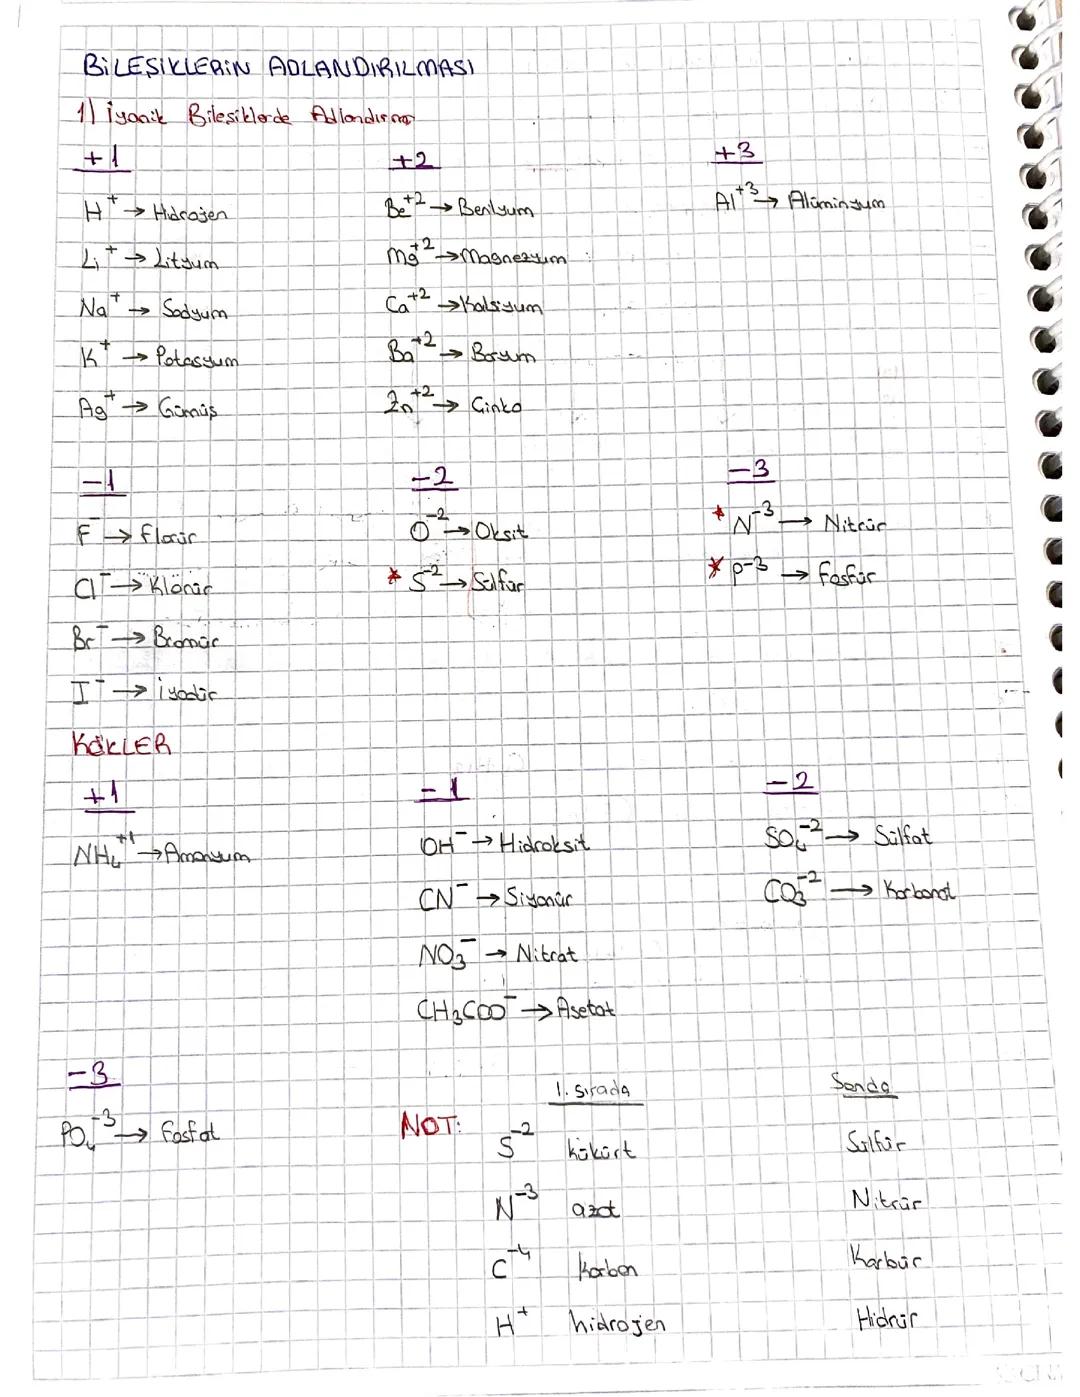 BİLEŞİKLERİN ADLANDIRILMASI
1) İyonik Bileşiklerde Adlandırma
+1 +2 +3
H⁺ → Hidrojen Be⁺² → Berilyum Al⁺³ → Alüminyum
Li⁺ → Lityum Mg⁺² → Magnezyum
Na⁺ → Sodyum Ca⁺² → Kalsiyum
K⁺ → Potasyum Ba⁺² → Baryum
Ag⁺ → Gümüş Zn⁺² → Çinko
-1 -2 -3
F⁻ → Florür O⁻² → Oksit * N⁻³ → Nitrür
Cl⁻ → Klörür * S⁻² → Sülfür * P⁻³ → Fosfür
Br⁻ → Bromür
I⁻ → İyodür
KÖKLER
+1 -1 -2
NH₄⁺¹ → Amonyum OH⁻ → Hidroksit SO₄⁻² → Sülfat
CN⁻ → Siyanür CO₃⁻² → Karbonat
NO₃⁻ → Nitrat
CH₃COO⁻ → Asetat
-3
PO₄⁻³ → Fosfat
1. Sırada Sonda
NOT: S⁻² kükürt Sülfür
N⁻³ azot Nitrür
C⁻⁴ Karbon Karbür
H⁺ hidrojen Hidrür